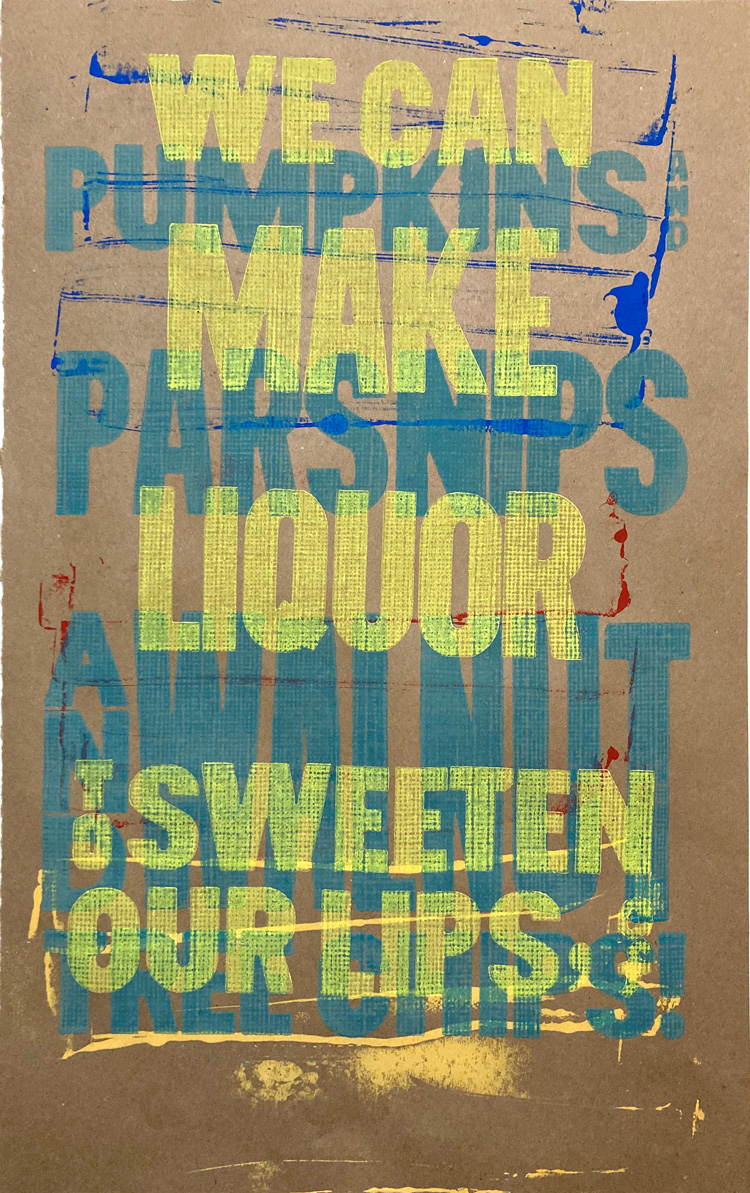 WE CAN
MAKE
LIQUOR
TO SWEETEN
OUR LIPS,
PUMPKINS AND
PARSNIPS
AND WALNUT
TREE CHIPS!